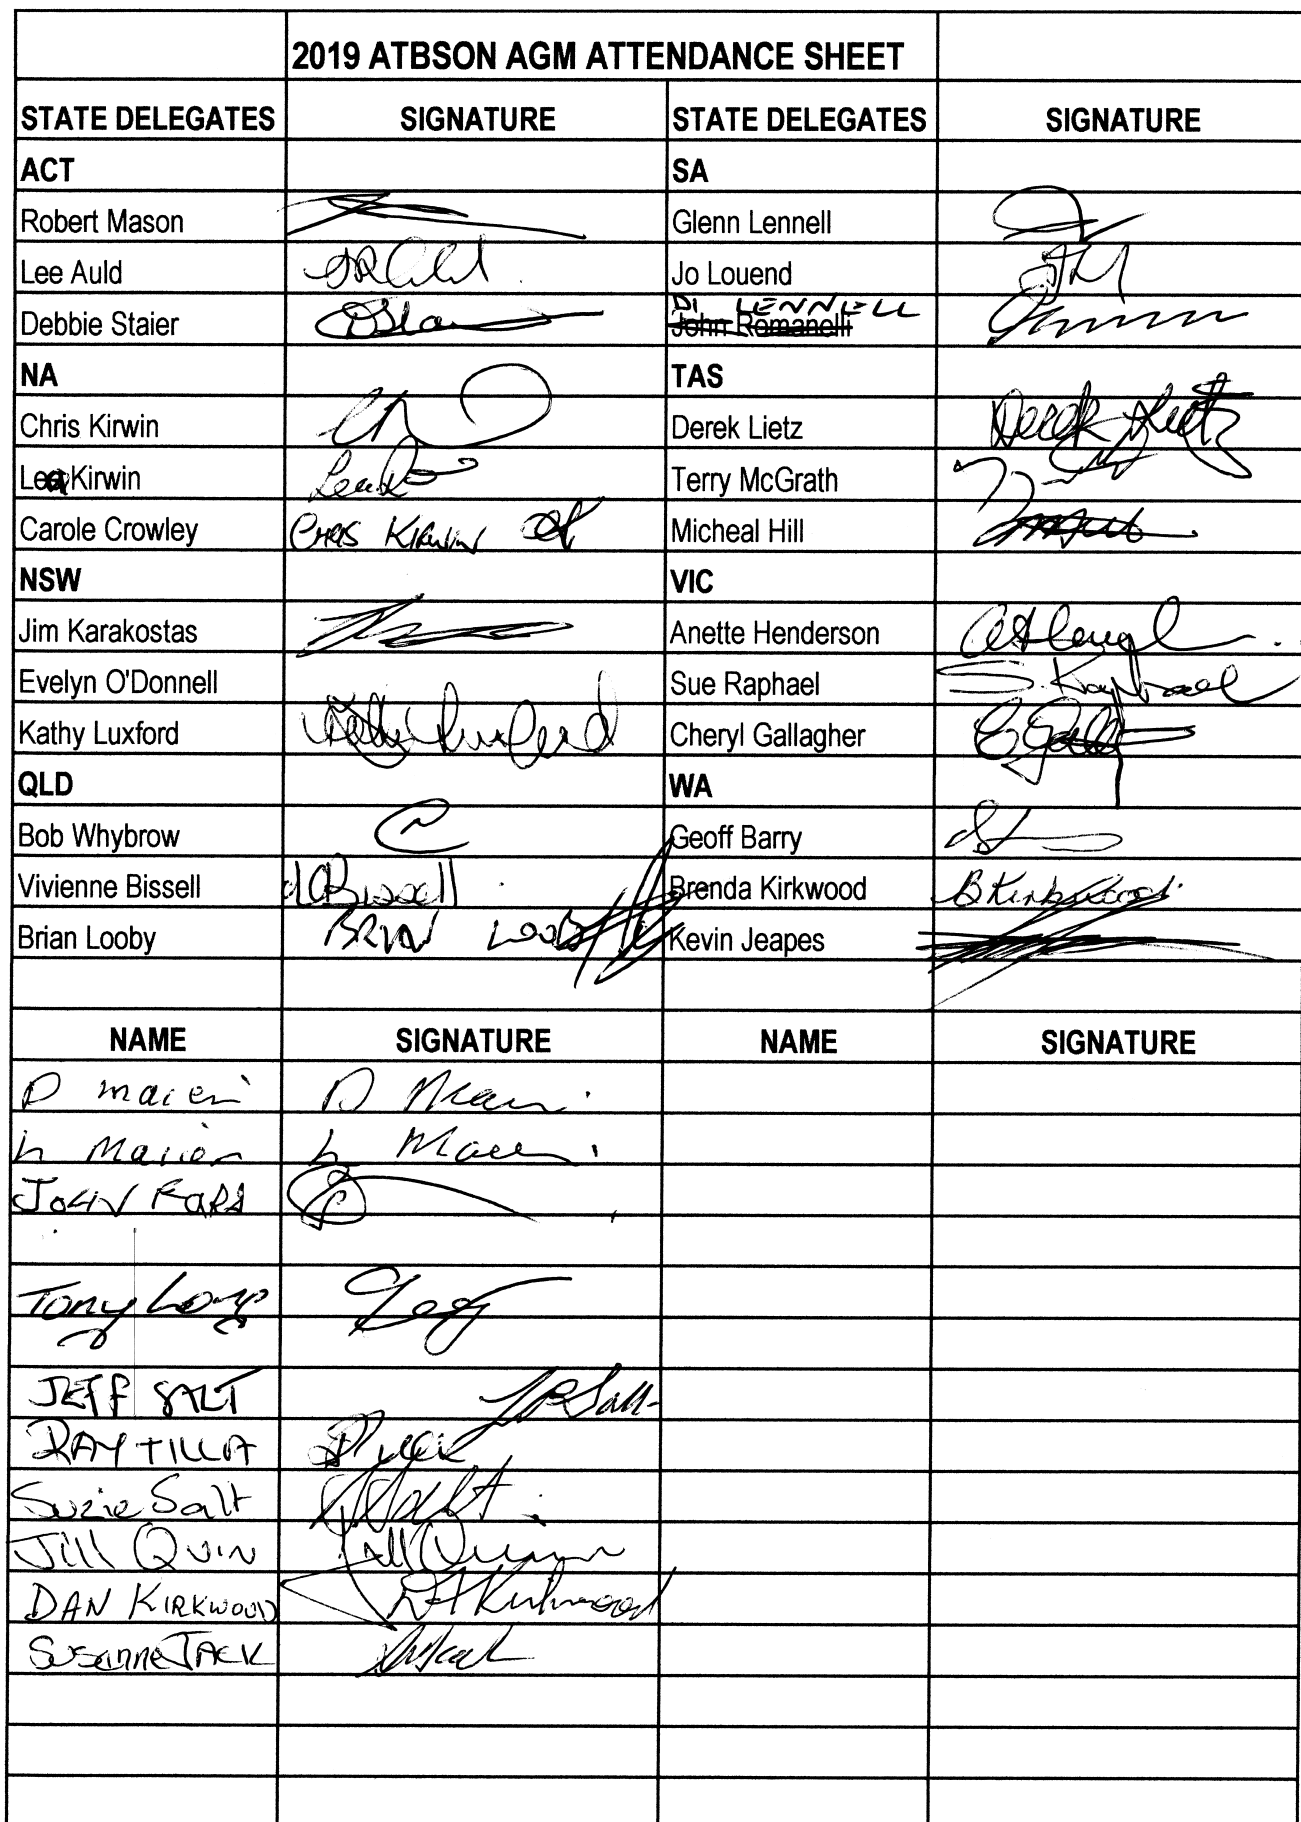 2019 ATBSON AGM ATTENDANCE SHEET
STATE DELEGATES SIGNATURE STATE DELEGATES SIGNATURE
ACT SA
Robert Mason Glenn Lennell
Lee Auld Jo Louend
Debbie Staier DI LENNELL
John Romanelli
NA TAS
Chris Kirwin Derek Lietz Derek Lietz
Lea Kirwin Terry McGrath
Carole Crowley CHRIS KIRWIN Micheal Hill
NSW VIC
Jim Karakostas Anette Henderson
Evelyn O'Donnell Sue Raphael S. Raphael
Kathy Luxford Kathy Luxford Cheryl Gallagher
QLD WA
Bob Whybrow Geoff Barry
Vivienne Bissell Bissell Brenda Kirkwood B Kirkwood
Brian Looby BRIAN LOOBY Kevin Jeapes
NAME SIGNATURE NAME SIGNATURE
D
L
JOHN
Tony Long
JEFF SALT Salt
RAY TILLA
Suzie Salt Salt
Jill QUIN Jill Quinn
DAN KIRKWOOD Kirkwood
Susanne JACK